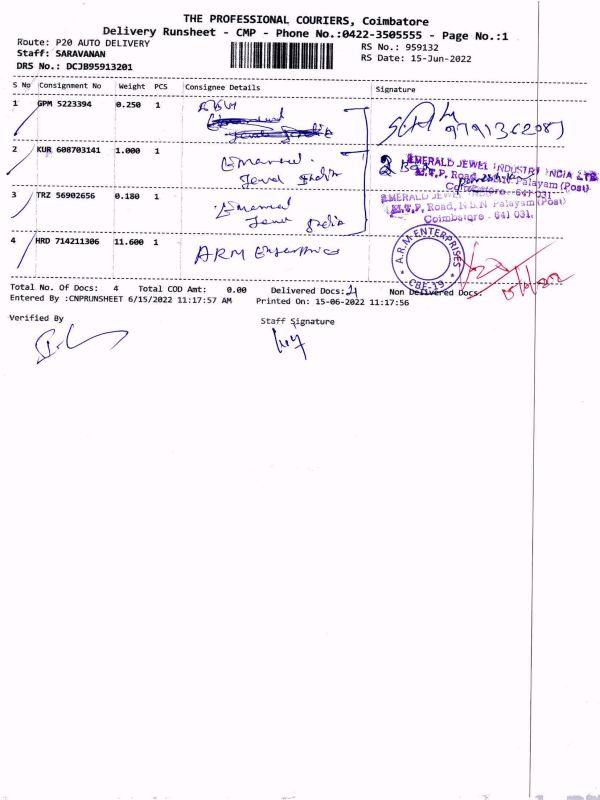 THE PROFESSIONAL COURIERS, Coimbatore
Delivery Runsheet - CMP - Phone No.:0422-3505555 - Page No.:1
Route: P20 AUTO DELIVERY
Staff: SARAVANAN
DRS No.: DCJB95913201
RS No.: 959132
RS Date: 15-Jun-2022
S No Consignment No Weight PCS Consignee Details Signature
1 GPM 5223394 0.250 1
2 KUR 608703141 1.000 1
Jewel India
EMERALD JEWEL INDUSTRY INDIA LTD
M.T.P. Road, N.S.N Palayam (Post)
Coimbatore - 641 031.
3 TRZ 56902656 0.180 1
India
EMERALD JEWEL
M.T.P. Road, N.S.N Palayam (Post)
Coimbatore - 641 031.
4 HRD 714211306 11.600 1 ARM Enterprises
A.R.M ENTERPRISES
CBE-19
Total No. Of Docs: 4 Total COD Amt: 0.00 Delivered Docs: 4 Non Delivered Docs:
Entered By :CNPRUNSHEET 6/15/2022 11:17:57 AM Printed On: 15-06-2022 11:17:56
Verified By
Staff Signature